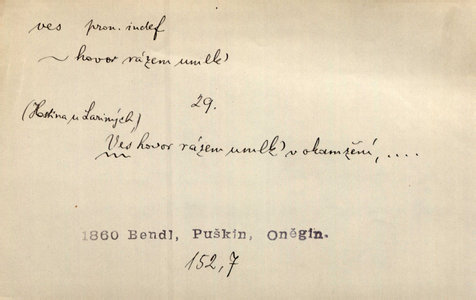 ves pron. indef
~ hovor rázem umlkl
29.
(Hostina u Lariných)
Ves hovor rázem umlkl v okamžení, ....
1860 Bendl, Puškin, Oněgin.
152,7